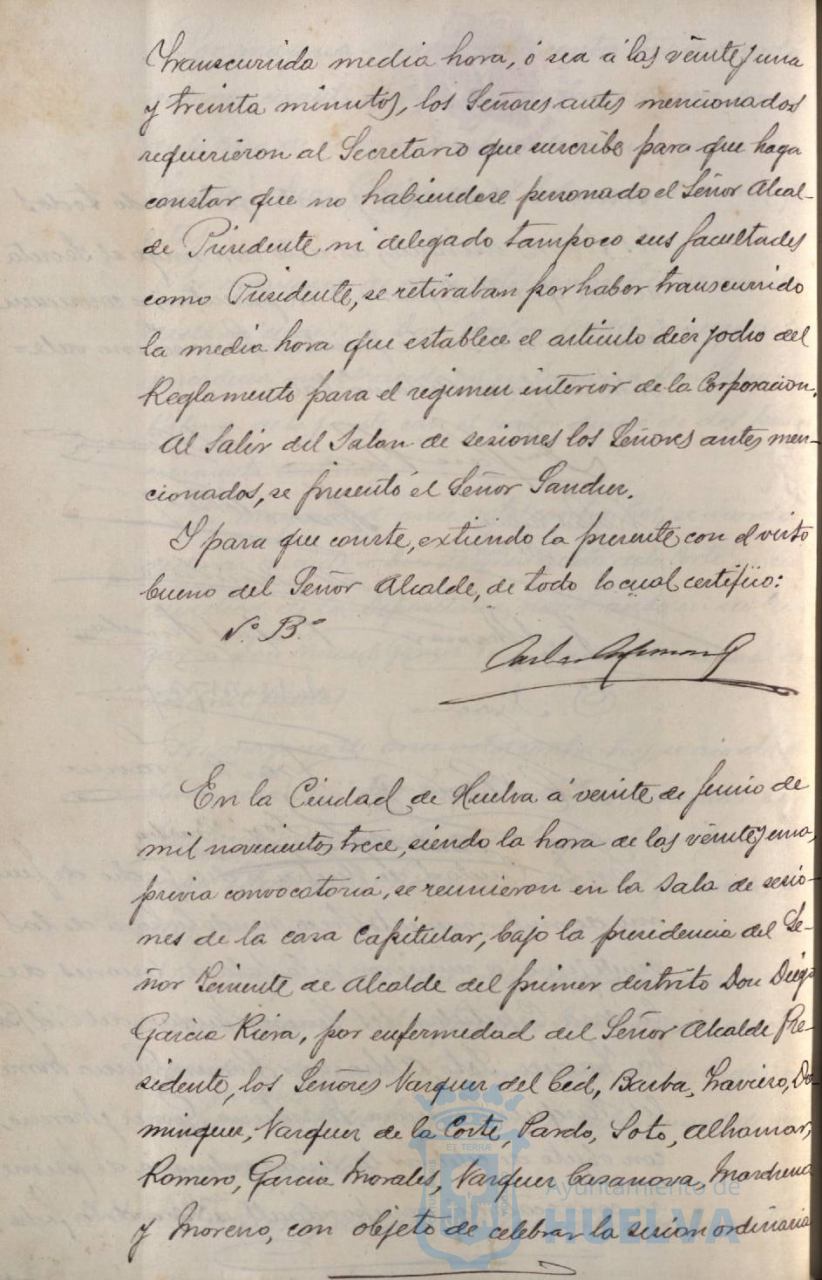 Transcurrida media hora, ó sea á las veinte y una
y treinta minutos, los Señores antes mencionados
requirieron al Secretario que suscribe para que haga
constar que no habiendose personado el Señor Alcal-
de Presidente ni delegado tampoco sus facultades
como Presidente, se retiraban por haber transcurrido
la media hora que establece el articulo diez y ocho del
Reglamento para el regimen interior de la Corporacion.
Al Salir del Salon de sesiones los Señores antes men-
cionados, se presentó el Señor Sanchez.
Y para que conste, extiendo la presente con el visto
bueno del Señor Alcalde, de todo lo cual certifico:
Vº Bº
En la Ciudad de Huelva á veinte de Junio de
mil novecientos trece, siendo la hora de las veinte y una,
previa convocatoria, se reunieron en la Sala de sesio-
nes de la casa Capitular, bajo la presidencia del Se-
ñor Teniente de Alcalde del primer distrito Don Diego
Garcia Riera, por enfermedad del Señor Alcalde Pre-
sidente, los Señores Vazquez del Cid, Barba, Travieso, Do-
minguez, Vazquez de la Corte, Pardo, Soto, Alhamar,
Romero, Garcia Morales, Vazquez Casanova, Marchena
y Moreno, con objeto de celebrar la sesion ordinaria
Ayuntamiento de
HUELVA